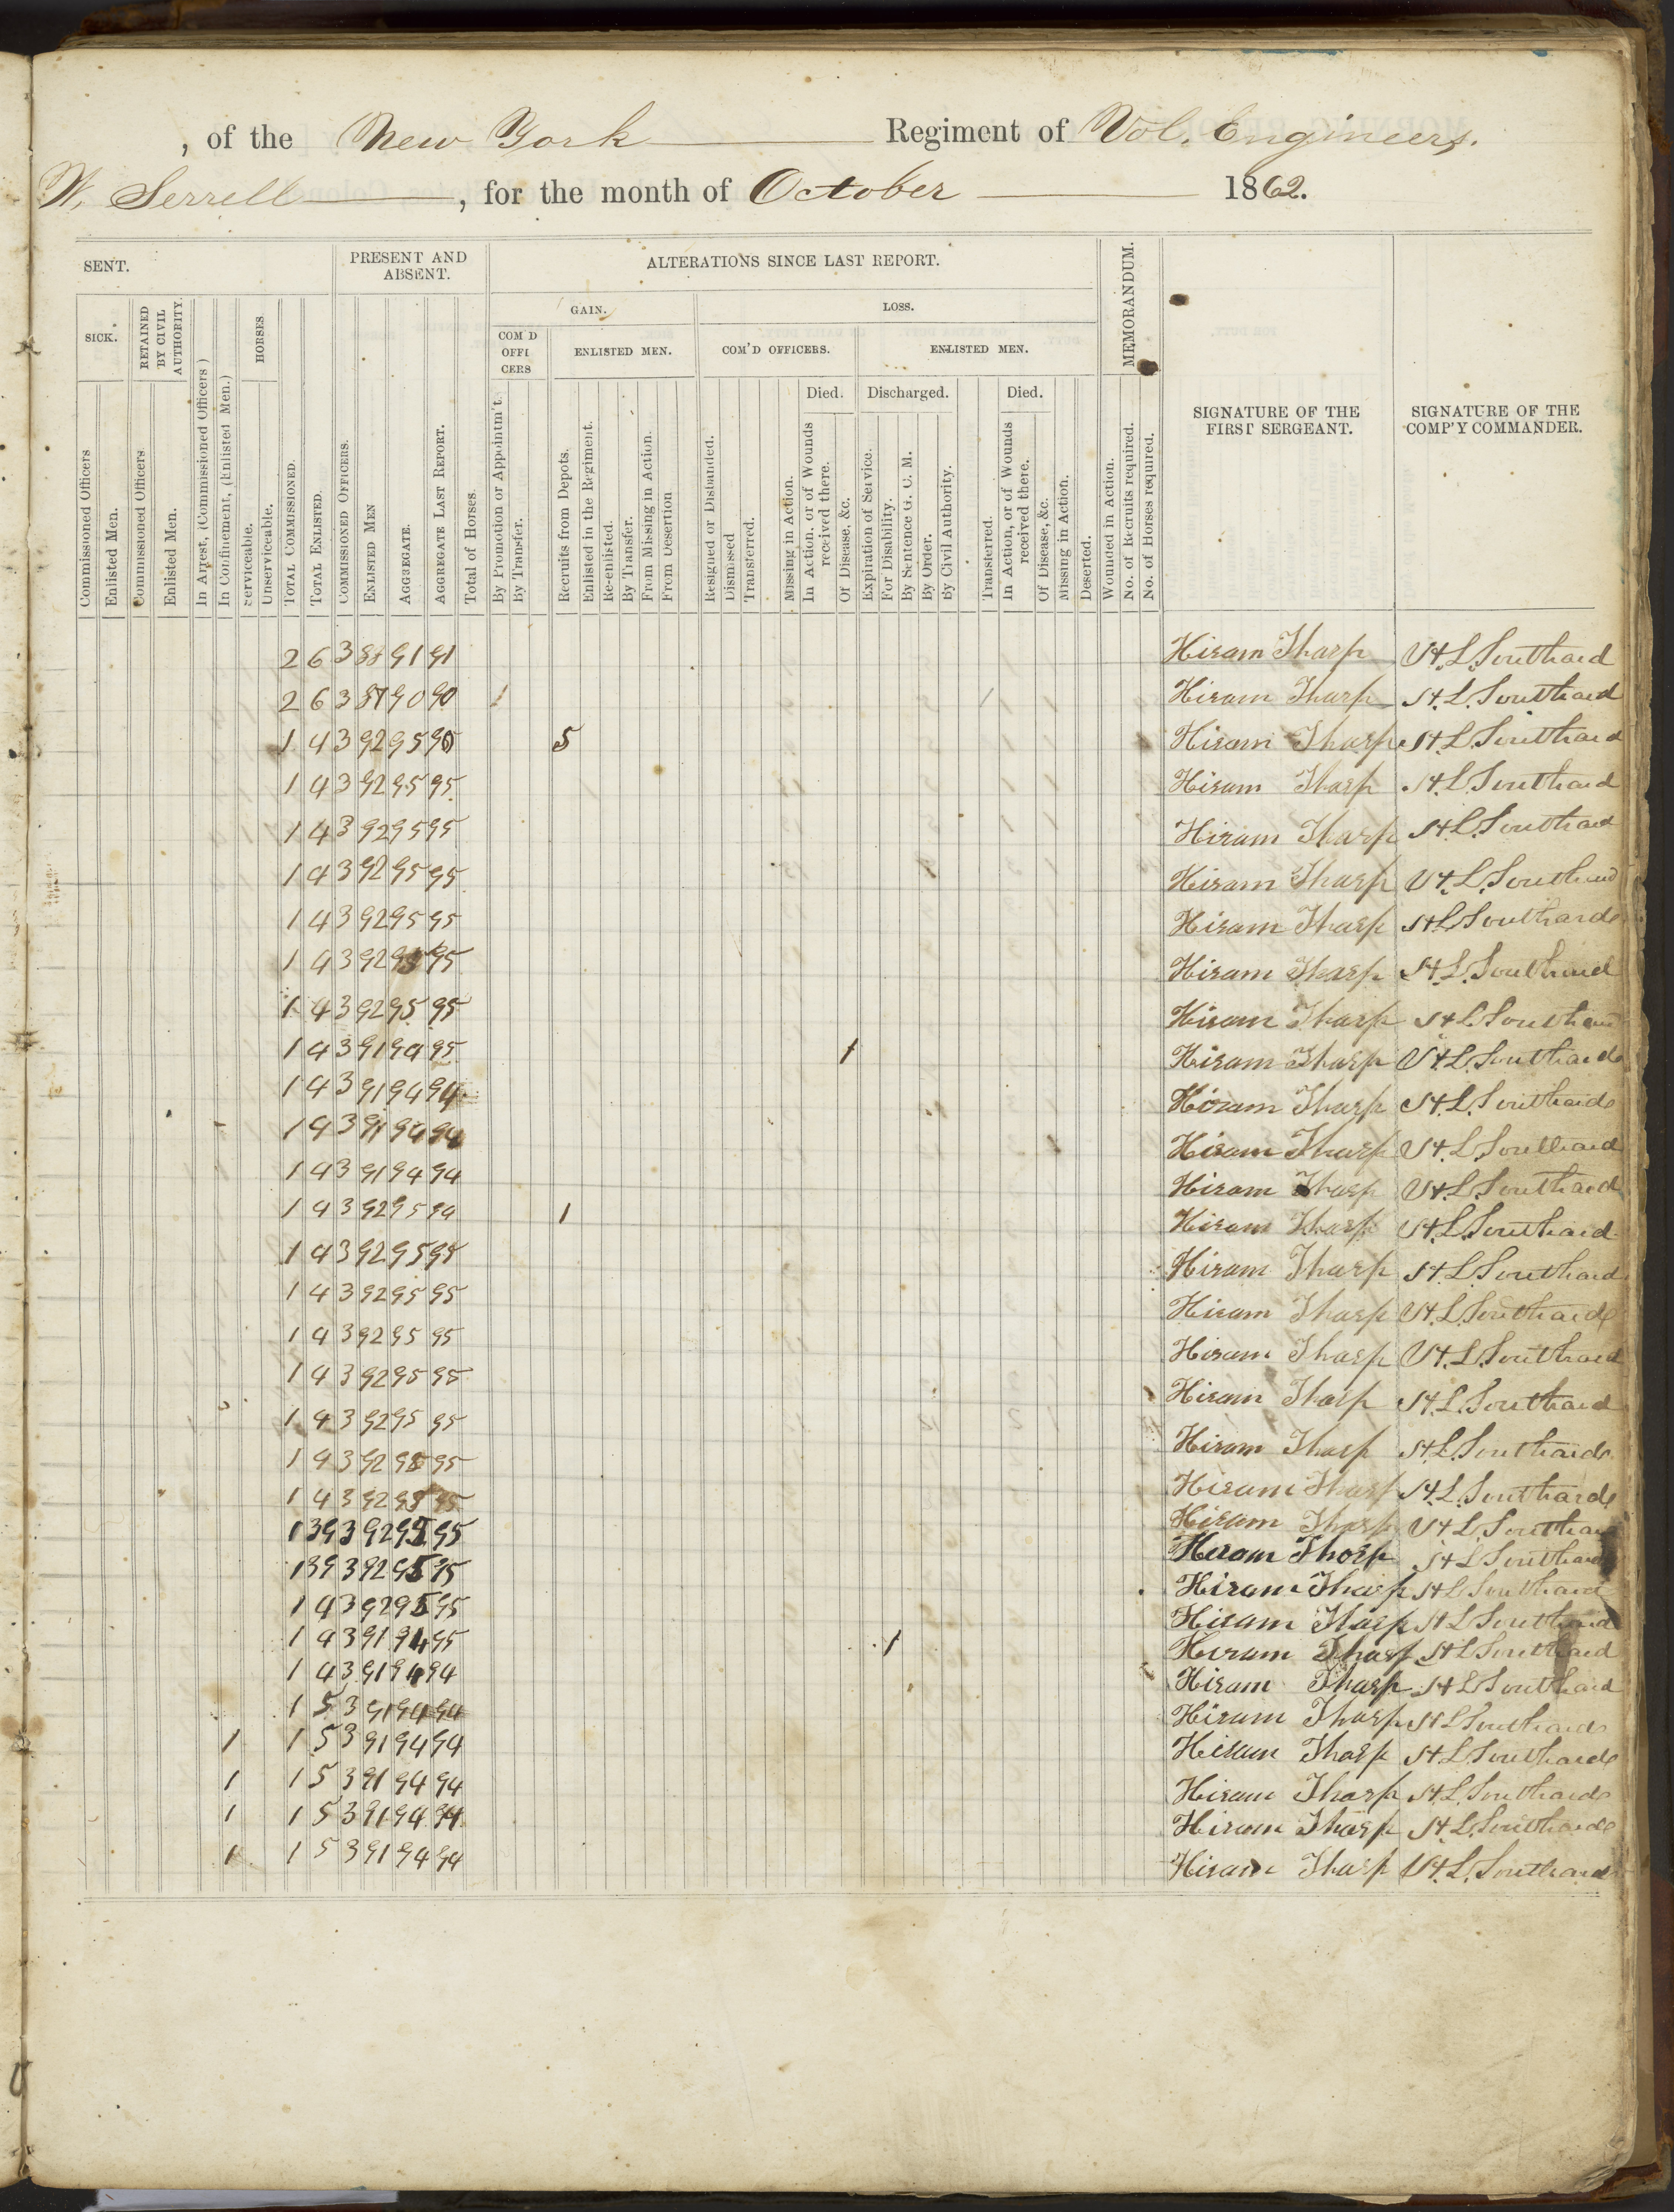 , of the New York Regiment of Vol. Engineers.
W. Serrell, for the month of October 1862.
SENT.
PRESENT AND ABSENT.
ALTERATIONS SINCE LAST REPORT.
MEMORANDUM.
SIGNATURE OF THE FIRST SERGEANT.
SIGNATURE OF THE COMP'Y COMMANDER.
GAIN.
LOSS.
SICK.
RETAINED BY CIVIL AUTHORITY.
HORSES
COM'D OFFICERS
ENLISTED MEN.
COM'D OFFICERS.
ENLISTED MEN.
Died.
Discharged.
Died.
Commissioned Officers
Enlisted Men.
Commissioned Officers.
Enlisted Men.
In Arrest, (Commissioned Officers)
In Confinement, (Enlisted Men.)
Serviceable.
Unserviceable.
TOTAL COMMISSIONED.
TOTAL ENLISTED.
COMMISSIONED OFFICERS.
ENLISTED MEN
AGGREGATE.
AGGREGATE LAST REPORT.
Total of Horses.
By Promotion or Appointm't.
By Transfer.
Recruits from Depots.
Enlisted in the Regiment.
Re-enlisted.
By Transfer.
From Missing in Action.
From Desertion
Resigned or Disbanded.
Dismissed
Transferred.
Missing in Action.
In Action, or of Wounds received there.
Of Disease, &c.
Expiration of Service.
For Disability.
By Sentence G. C. M.
By Order.
By Civil Authority.
Transferred.
In Action, or of Wounds received there.
Of Disease, &c.
Missing in Action.
Deserted.
Wounded in Action.
No. of Recruits required.
No. of Horses required.
2 6 3 88 91 91 Hiram Tharp H. L. Southard
2 6 3 87 90 90 1 1 Hiram Tharp H. L. Southard
1 4 3 92 95 90 5 Hiram Tharp H. L. Southard
1 4 3 92 95 95 Hiram Tharp H. L. Southard
1 4 3 92 95 95 Hiram Tharp H. L. Southard
1 4 3 92 95 95 Hiram Tharp H. L. Southard
1 4 3 92 95 95 Hiram Tharp H. L. Southard
1 4 3 92 95 95 Hiram Tharp H. L. Southard
1 4 3 92 95 95 Hiram Tharp H. L. Southard
1 4 3 91 94 95 1 Hiram Tharp H. L. Southard
1 4 3 91 94 94 Hiram Tharp H. L. Southard
1 4 3 91 94 94 Hiram Tharp H. L. Southard
1 4 3 91 94 94 Hiram Tharp H. L. Southard
1 4 3 92 95 94 1 Hiram Tharp H. L. Southard
1 4 3 92 95 95 Hiram Tharp H. L. Southard
1 4 3 92 95 95 Hiram Tharp H. L. Southard
1 4 3 92 95 95 Hiram Tharp H. L. Southard
1 4 3 92 95 95 Hiram Tharp H. L. Southard
1 4 3 92 95 95 Hiram Tharp H. L. Southard
1 4 3 92 95 95 Hiram Tharp H. L. Southard
1 4 3 92 95 95 Hiram Tharp H. L. Southard
1 39 3 92 95 95 Hiram Tharp H. L. Southard
1 39 3 92 95 95 Hiram Tharp H. L. Southard
1 4 3 92 95 95 Hiram Tharp H. L. Southard
1 4 3 91 94 95 1 Hiram Tharp H. L. Southard
1 4 3 91 94 94 Hiram Tharp H. L. Southard
1 5 3 91 94 94 Hiram Tharp H. L. Southard
1 1 5 3 91 94 94 Hiram Tharp H. L. Southard
1 1 5 3 91 94 94 Hiram Tharp H. L. Southard
1 1 5 3 91 94 94 Hiram Tharp H. L. Southard
1 1 5 3 91 94 94 Hiram Tharp H. L. Southard